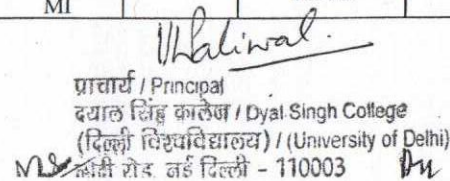 MI
V.Paliwal.
प्राचार्य / Principal
दयाल सिंह कालेज / Dyal Singh College
(दिल्ली विश्वविद्यालय) / (University of Delhi)
लोदी रोड, नई दिल्ली - 110003